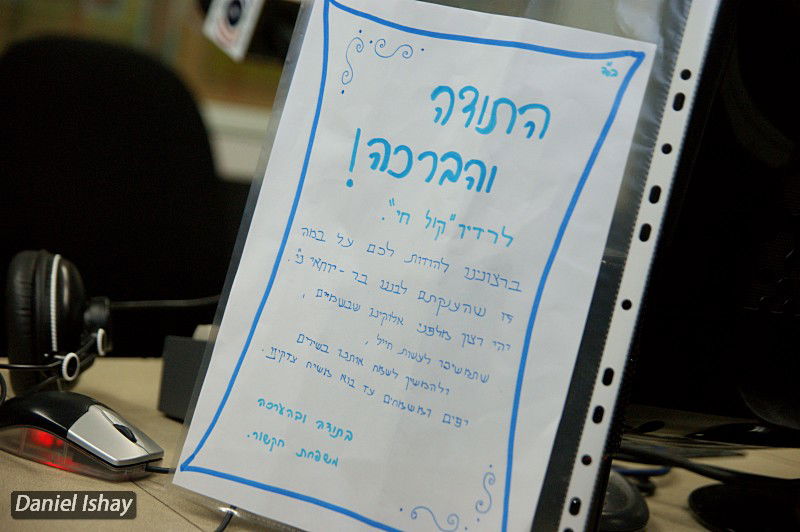 בס"ד
התודה
והברכה!
לרדיו "קול חי".
ברצוננו להודות לכם על במה
זו שהענקתם לבננו בר-יוחאי ני".
יהי רצון מלפני אלוקינו שבשמים,
שתמשיכו לעשות חיל,
ולהמשיך לשמח אותנו בשירים
יפים ומשמחים עד בוא משיח צדקינו.
בתודה ובהערכה
משפחת חקשור.
Daniel Ishay